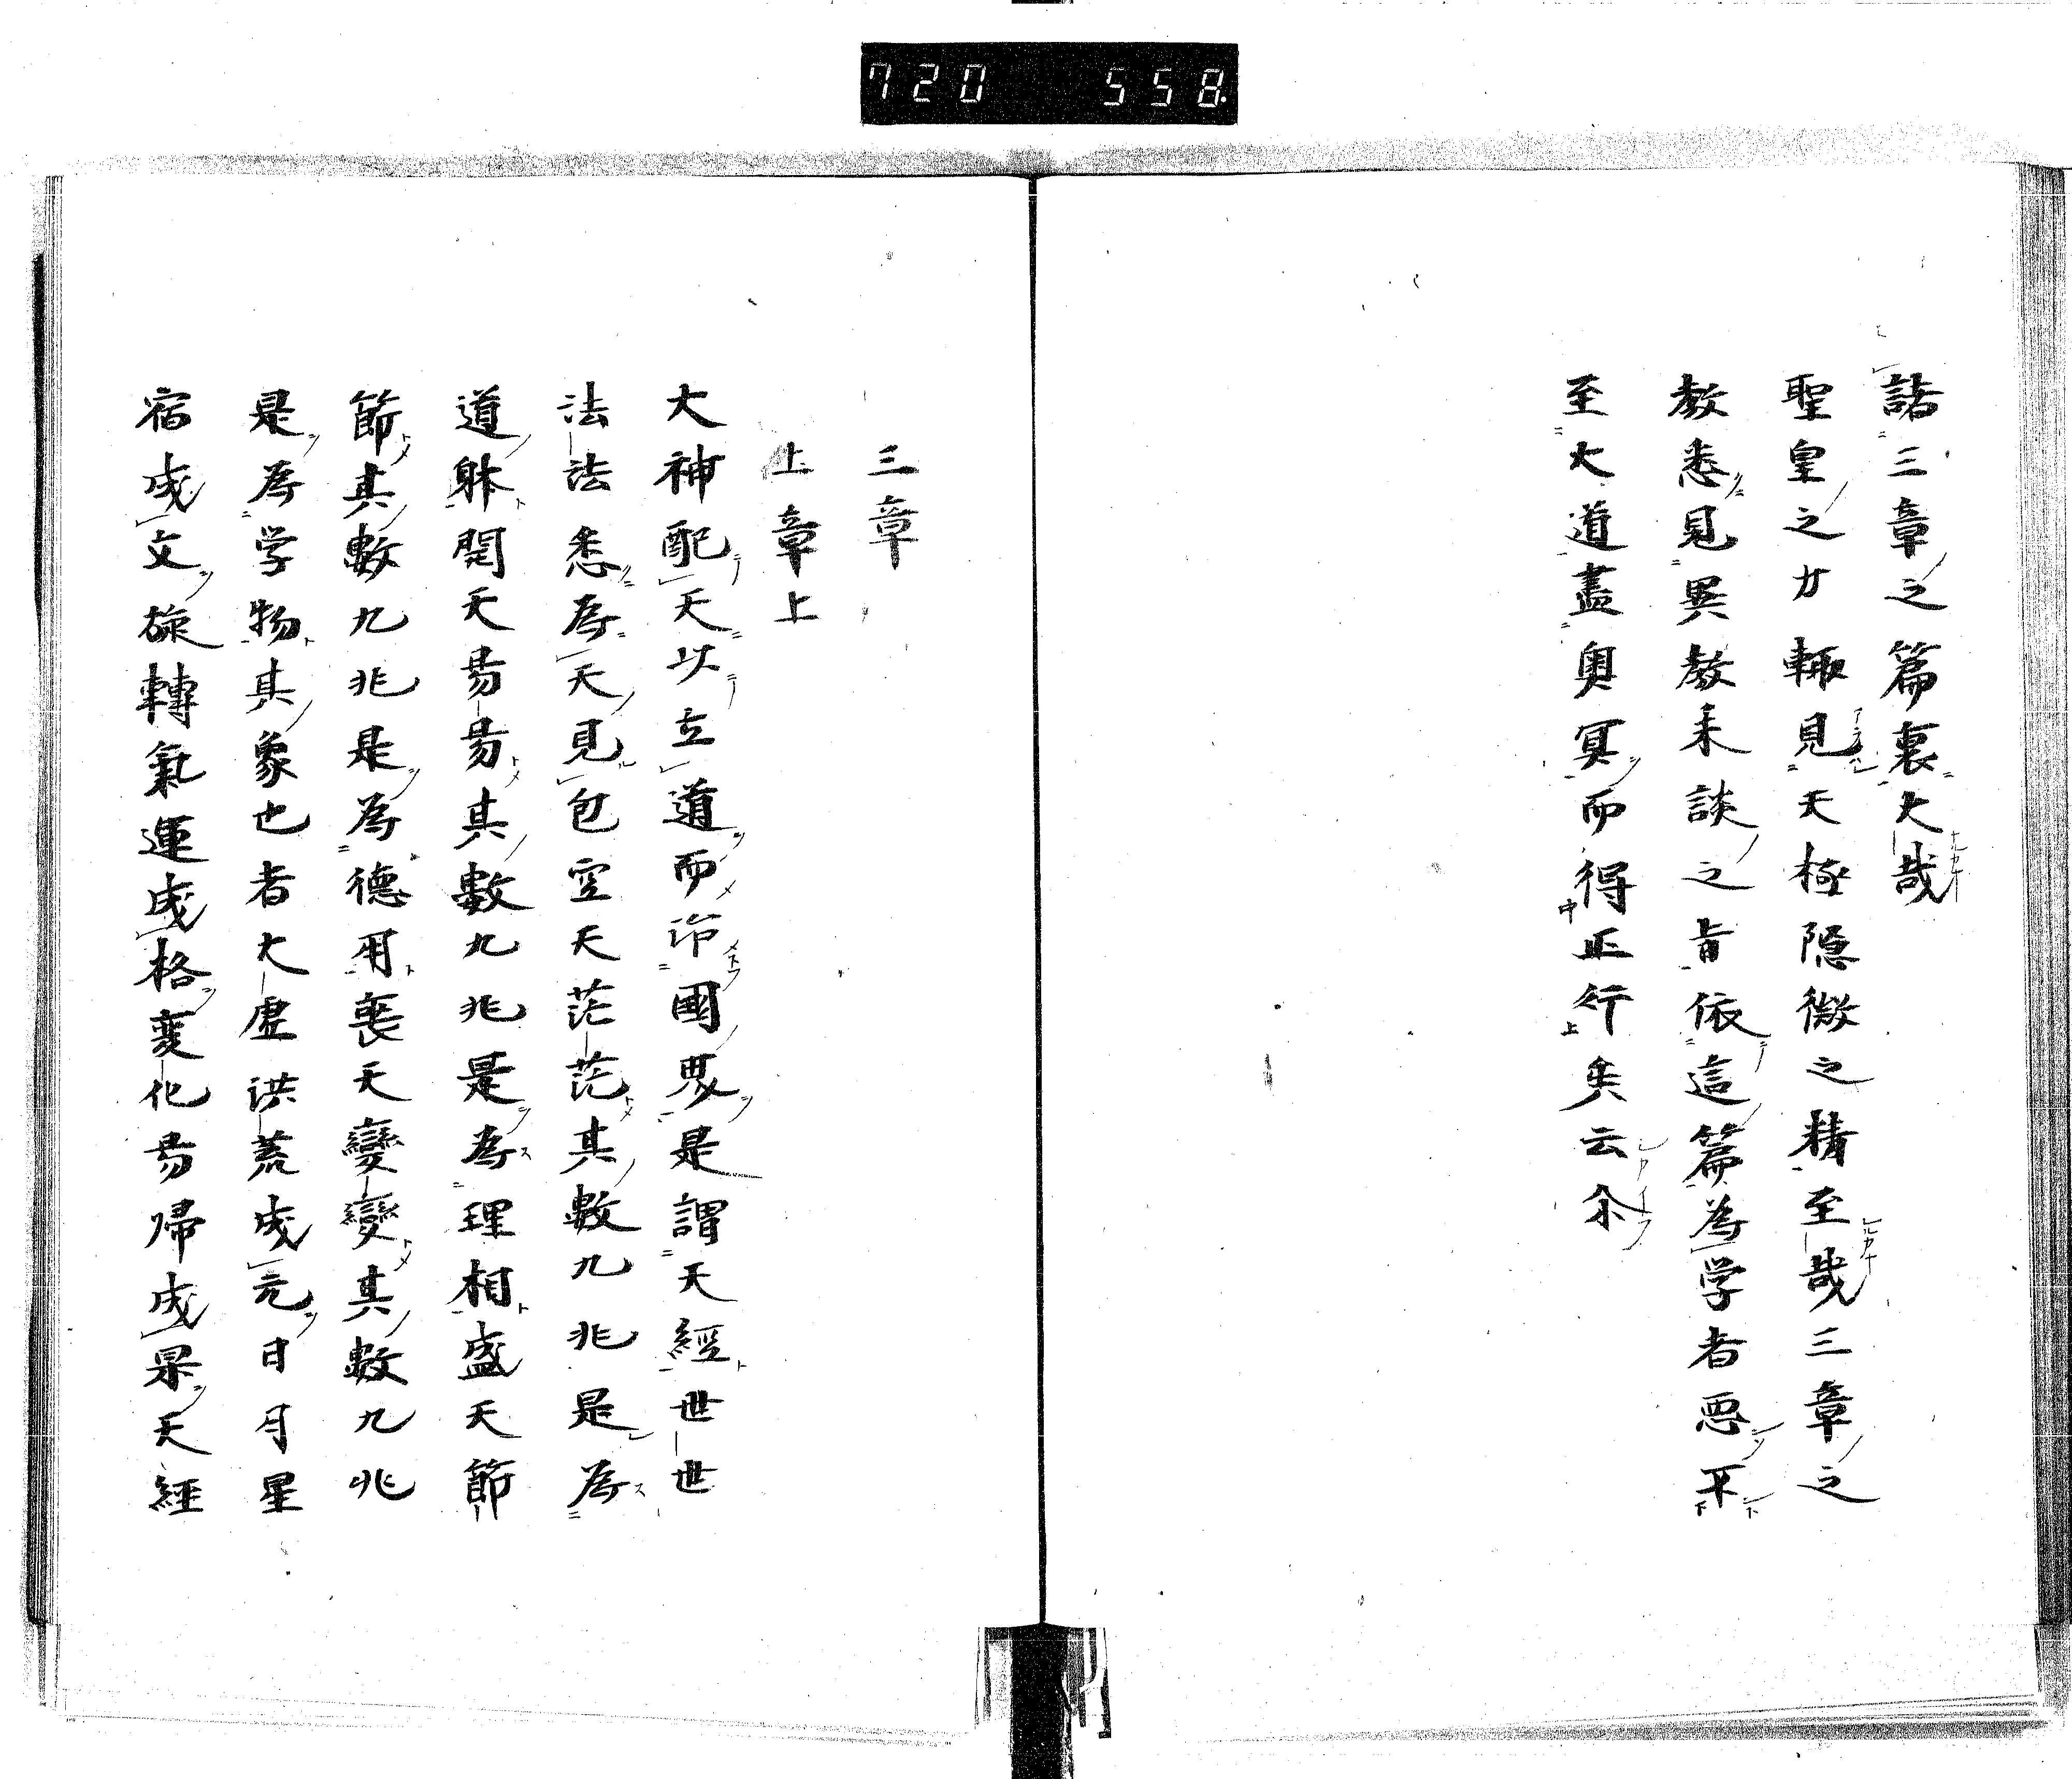 720 558
諸三章之篇裏大哉
聖皇之才輙見天極隐微之精至哉三章之
教悉見異教未談之旨依這篇為学者要平
至大道盡奥冥而得正行矣云尓
三章
上章上
大神配天以立道而治國要是謂天經世世
法法悉為天見包空天茫茫其數九兆是為
道躰閲天昜昜其數九兆是為理相盛天節
節其數九兆是為德用喪天變變其數九兆
是為学物其象也者大虚洪荒成元日月星
宿成文旋轉氣運成格変化昜帰成果天經